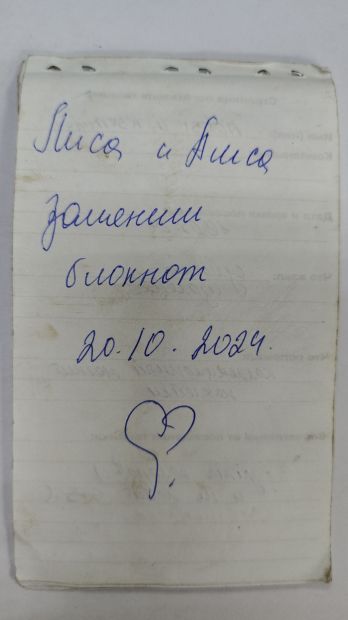 Лиса и Алиса
заменили
блокнот
20.10.2024.